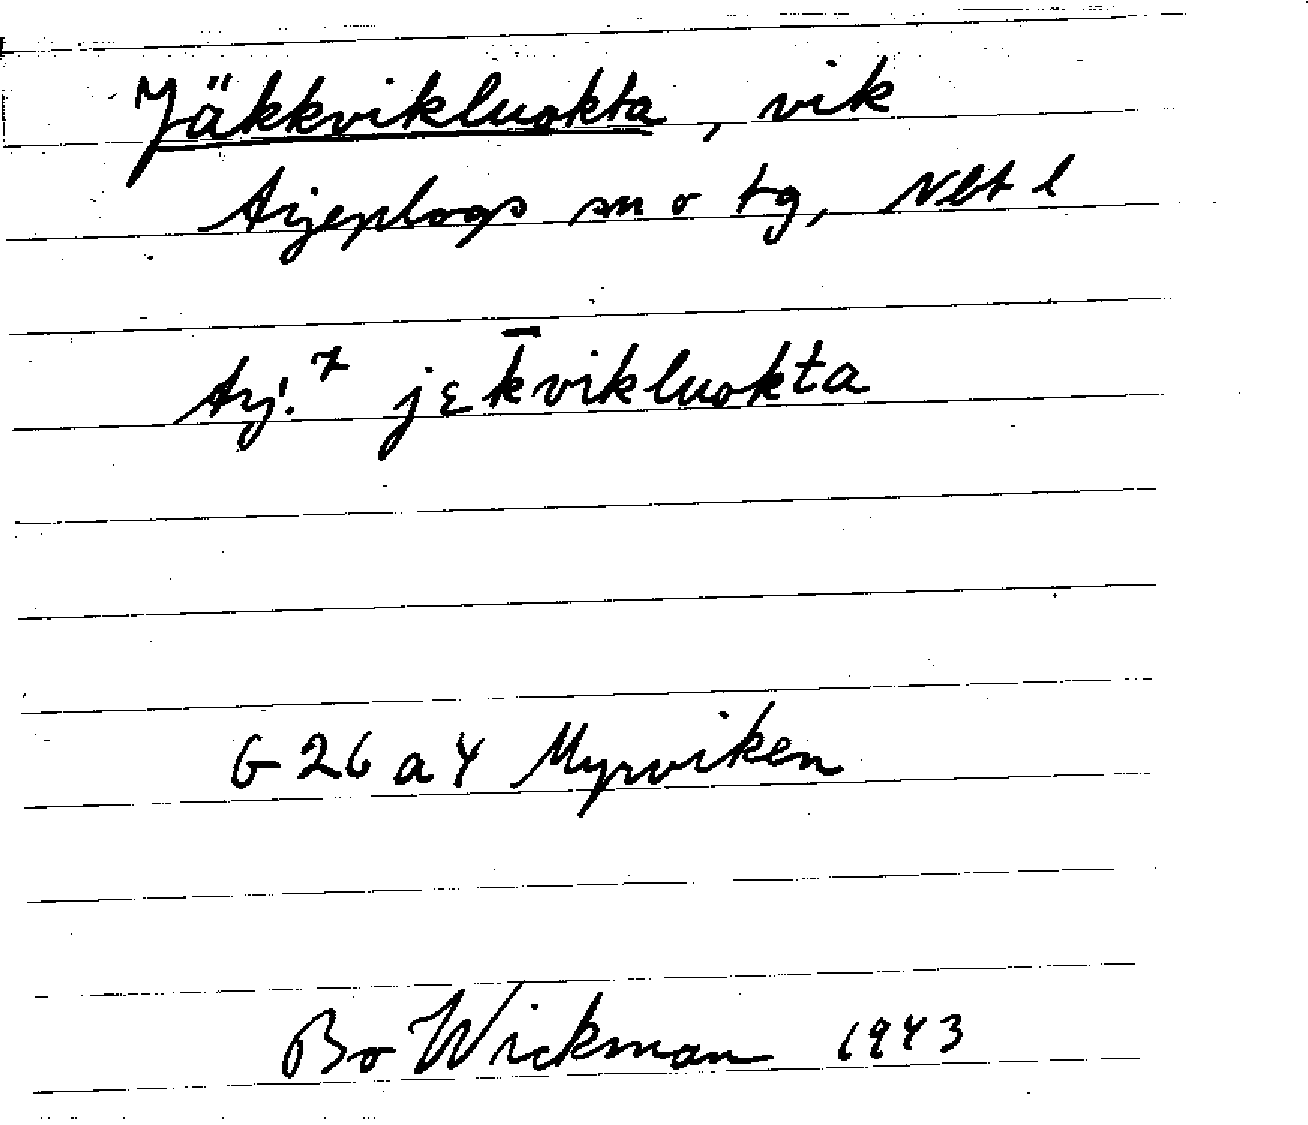 Jäkkvikluokta, vik
Arjeplogs sn o tg, Vbt l
Arj.⁷ jɛk̄vikluokta
G 26 a 4 Myrviken
Bo Wickman 1943